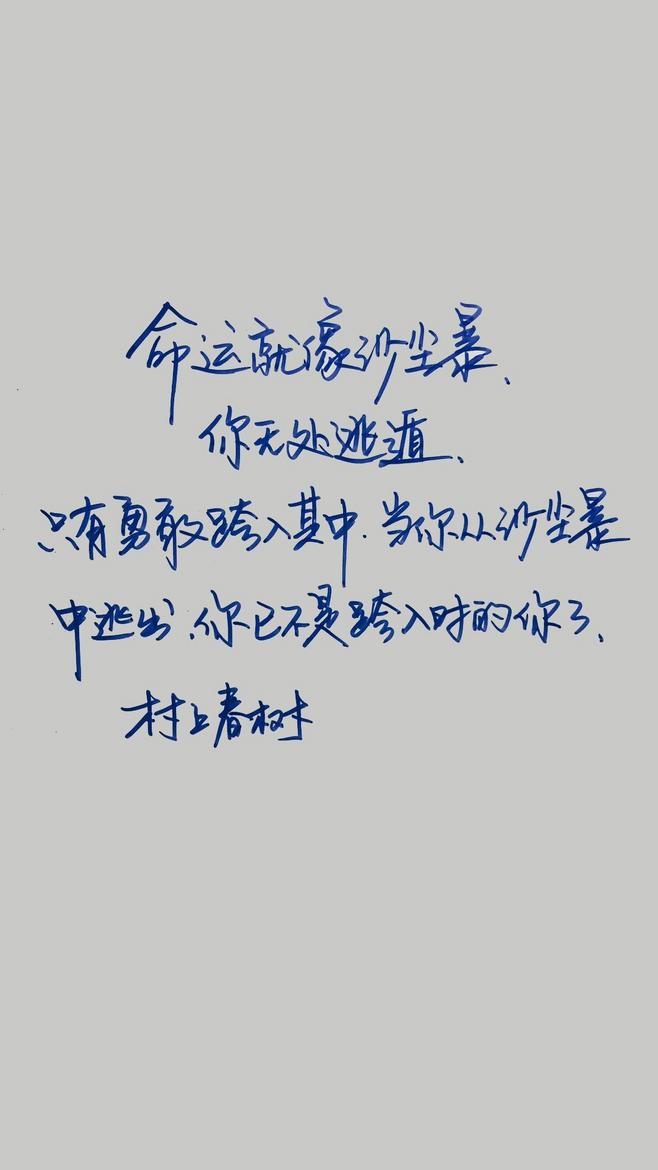 命运就像沙尘暴、
你无处逃遁、
只有勇敢跨入其中.当你从沙尘暴
中逃出、你已不是跨入时的你了、
村上春树